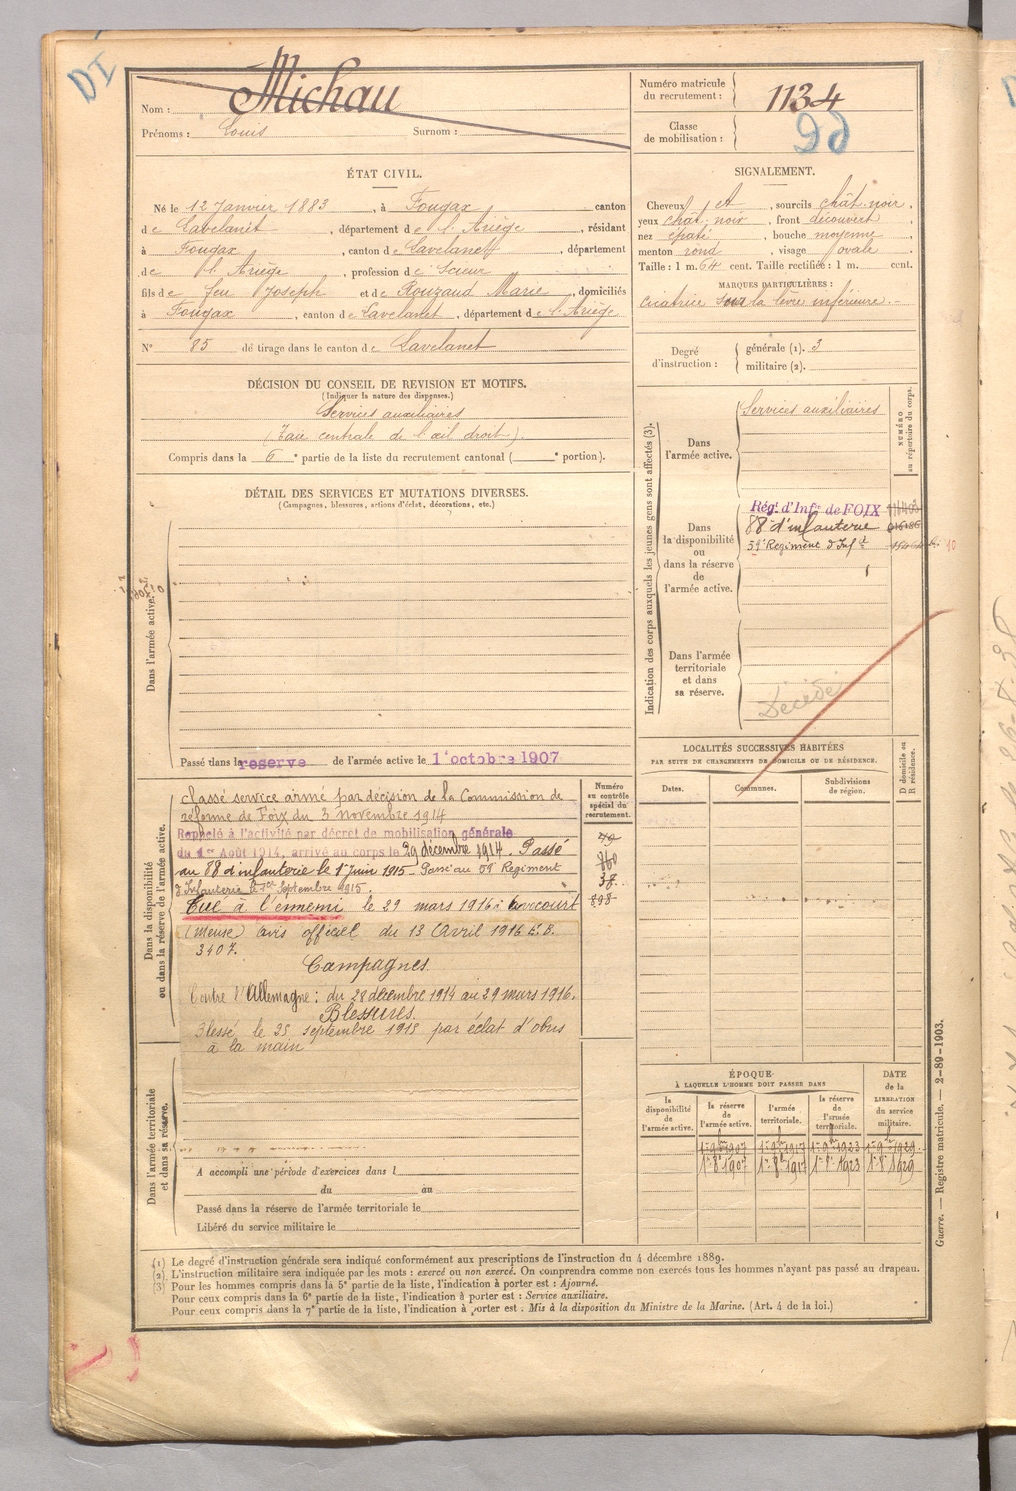 DI
Nom : Michau
Prénoms : Louis Surnom :
Numéro matricule du recrutement : 1134
Classe de mobilisation :
ÉTAT CIVIL.
Né le 12 Janvier 1883, à Fougax canton
de Lavelanet, département de l'Ariège, résidant
à Fougax, canton de Lavelanet, département
de l'Ariège, profession de Scieur
fils de feu Joseph et de Rouzaud Marie, domiciliés
à Fougax, canton de Lavelanet, département de l'Ariège
N° 85 de tirage dans le canton de Lavelanet
SIGNALEMENT.
Cheveux et, sourcils chât. noir,
yeux chât. noir, front découvert
nez épaté, bouche moyenne
menton rond, visage ovale
Taille : 1 m. 64 cent. Taille rectifiée : 1 m. cent.
MARQUES PARTICULIÈRES :
cicatrice sous la lèvre inférieure.-
Degré d'instruction :
générale (1). 3
militaire (2).
DÉCISION DU CONSEIL DE REVISION ET MOTIFS.
(Indiquer la nature des dispenses.)
Services auxiliaires
(Taie centrale de l'œil droit).
Compris dans la 6e partie de la liste du recrutement cantonal (e portion).
DÉTAIL DES SERVICES ET MUTATIONS DIVERSES.
(Campagnes, blessures, actions d'éclat, décorations, etc.)
Dans l'armée active.
Passé dans la réserve de l'armée active le 1er octobre 1907
Indication des corps auxquels les jeunes gens sont affectés (3).
NUMÉRO au répertoire du corps.
Dans l'armée active.
Services auxiliaires
Dans la disponibilité ou dans la réserve de l'armée active.
Régt d'Infie de FOIX
88e d'infanterie
59e Régiment d'Infie
10
Dans l'armée territoriale et dans sa réserve.
Décédé
Dans la disponibilité ou dans la réserve de l'armée active.
Numéro au contrôle spécial du recrutement.
classé service armé par décision de la Commission de
réforme de Foix du 3 novembre 1914
Rappelé à l'activité par décret de mobilisation générale
du 1er Août 1914, arrivé au corps le 29 décembre 1914. Passé
au 88 d'infanterie le 1er Juin 1915. Passé au 59e Régiment
d'Infanterie le 1er Septembre 1915.
Tué à l'ennemi le 29 mars 1916 à
(Meuse) avis officiel du 13 Avril 1916 E.B.
3407.
Campagnes.
Contre l'Allemagne : du 28 décembre 1914 au 29 mars 1916.
Blessures.
Blessé le 25 septembre 1915 par éclat d'obus
à la main
LOCALITÉS SUCCESSIVES HABITÉES
PAR SUITE DE CHANGEMENTS DE DOMICILE OU DE RÉSIDENCE.
Dates.
Communes.
Subdivisions de région.
D domicile ou R résidence.
ÉPOQUE
À LAQUELLE L'HOMME DOIT PASSER DANS
DATE de la LIBÉRATION du service militaire.
la disponibilité de l'armée active.
la réserve de l'armée active.
l'armée territoriale.
la réserve de l'armée territoriale.
Dans l'armée territoriale et dans sa réserve.
A accompli une période d'exercices dans l
du au
Passé dans la réserve de l'armée territoriale le
Libéré du service militaire le
(1) Le degré d'instruction générale sera indiqué conformément aux prescriptions de l'instruction du 4 décembre 1889.
(2) L'instruction militaire sera indiquée par les mots : exercé ou non exercé. On comprendra comme non exercés tous les hommes n'ayant pas passé au drapeau.
(3) Pour les hommes compris dans la 5e partie de la liste, l'indication à porter est : Ajourné.
Pour ceux compris dans la 6e partie de la liste, l'indication à porter est : Service auxiliaire.
Pour ceux compris dans la 7e partie de la liste, l'indication à porter est : Mis à la disposition du Ministre de la Marine. (Art. 4 de la loi.)
Guerre. — Registre matricule. — 2-89-1903.